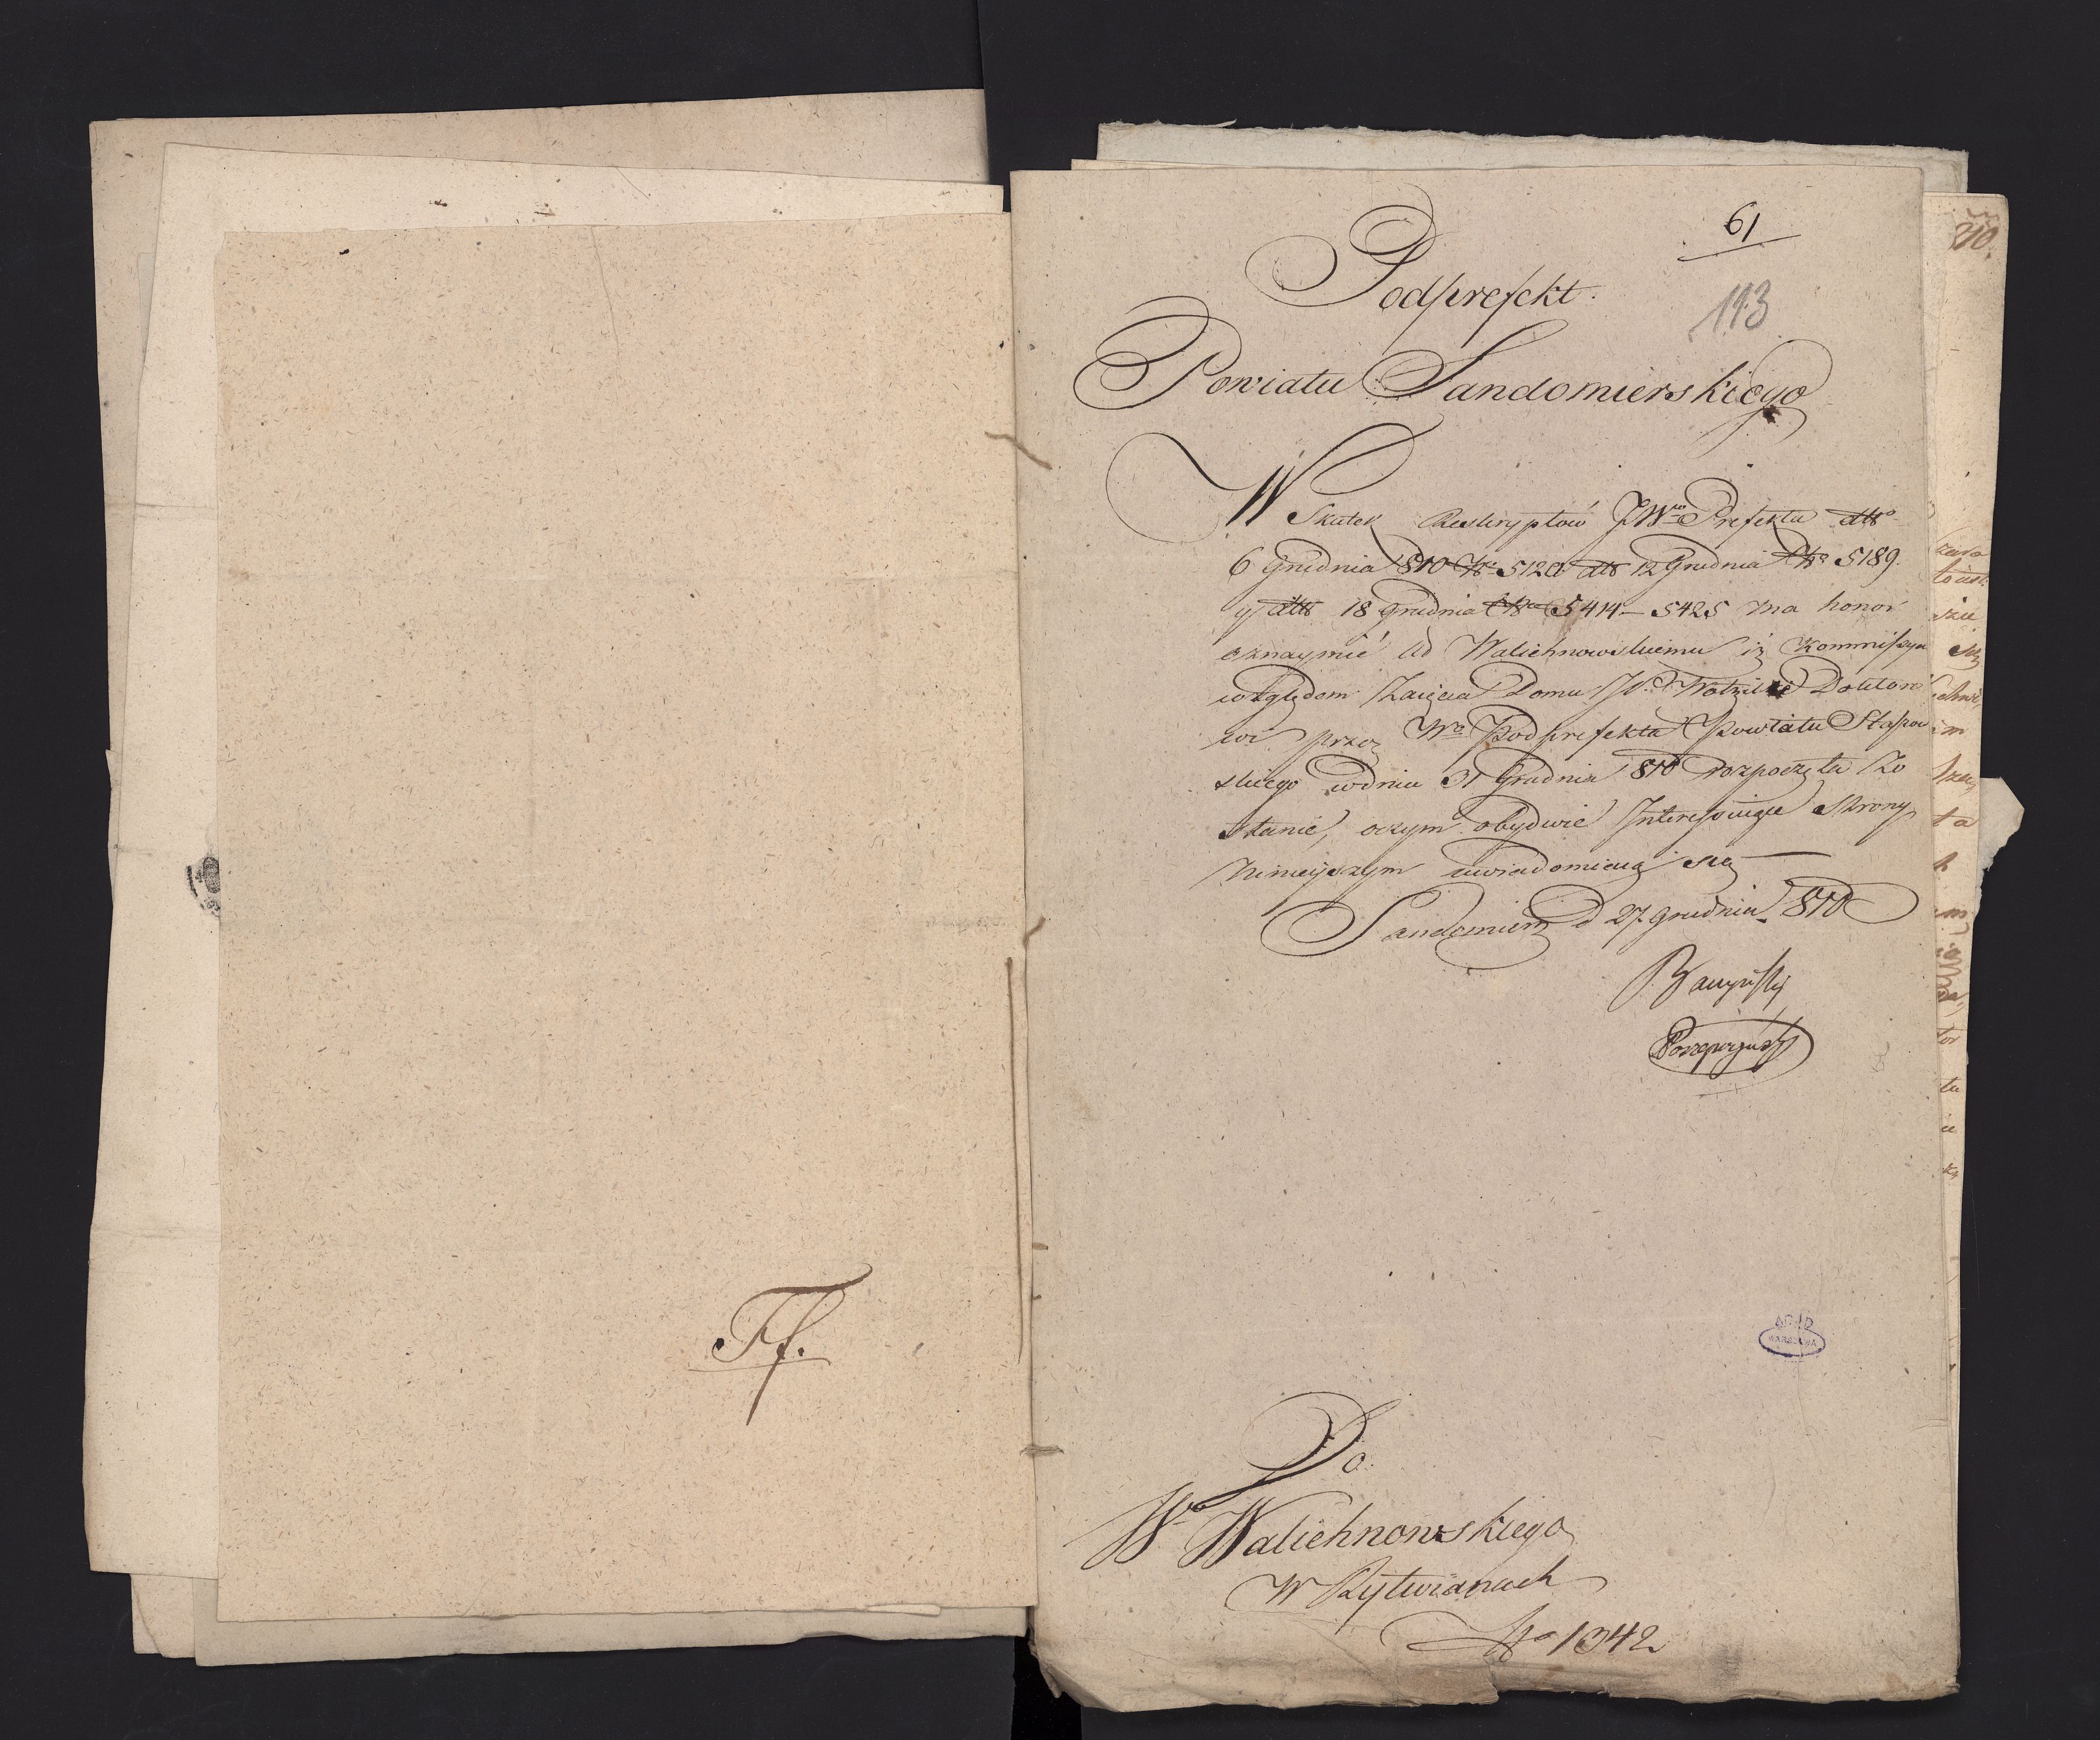 Ff.
61
113
Podprefekt.
Powiatu Sandomierskiego
W Skutek Reskryptów JWo Prefekta dtto
6 Grudnia 810 No 5120 dtto 12 Grudnia No 5189.
y dtto 18 Grudnia No 5414 – 5425 ma honor
oznaymić Ud Walichnowskiemu iż Kommissya
względem Zaięcia Domu JP. Doktoro
wi przez Wo Podprefekta Powiatu Staszow
skiego w dniu 31 Grudnia 810 rozpoczęta Zo
stanie, oczym obydwie Interessuiące Strony
Ninieyszym uwiadomiaią się
Sandomierz d 27. Grudnia 810
ARAD
WARSZAWA
Do
Wo Walichnowskiego
W Rytwianach
No 1342